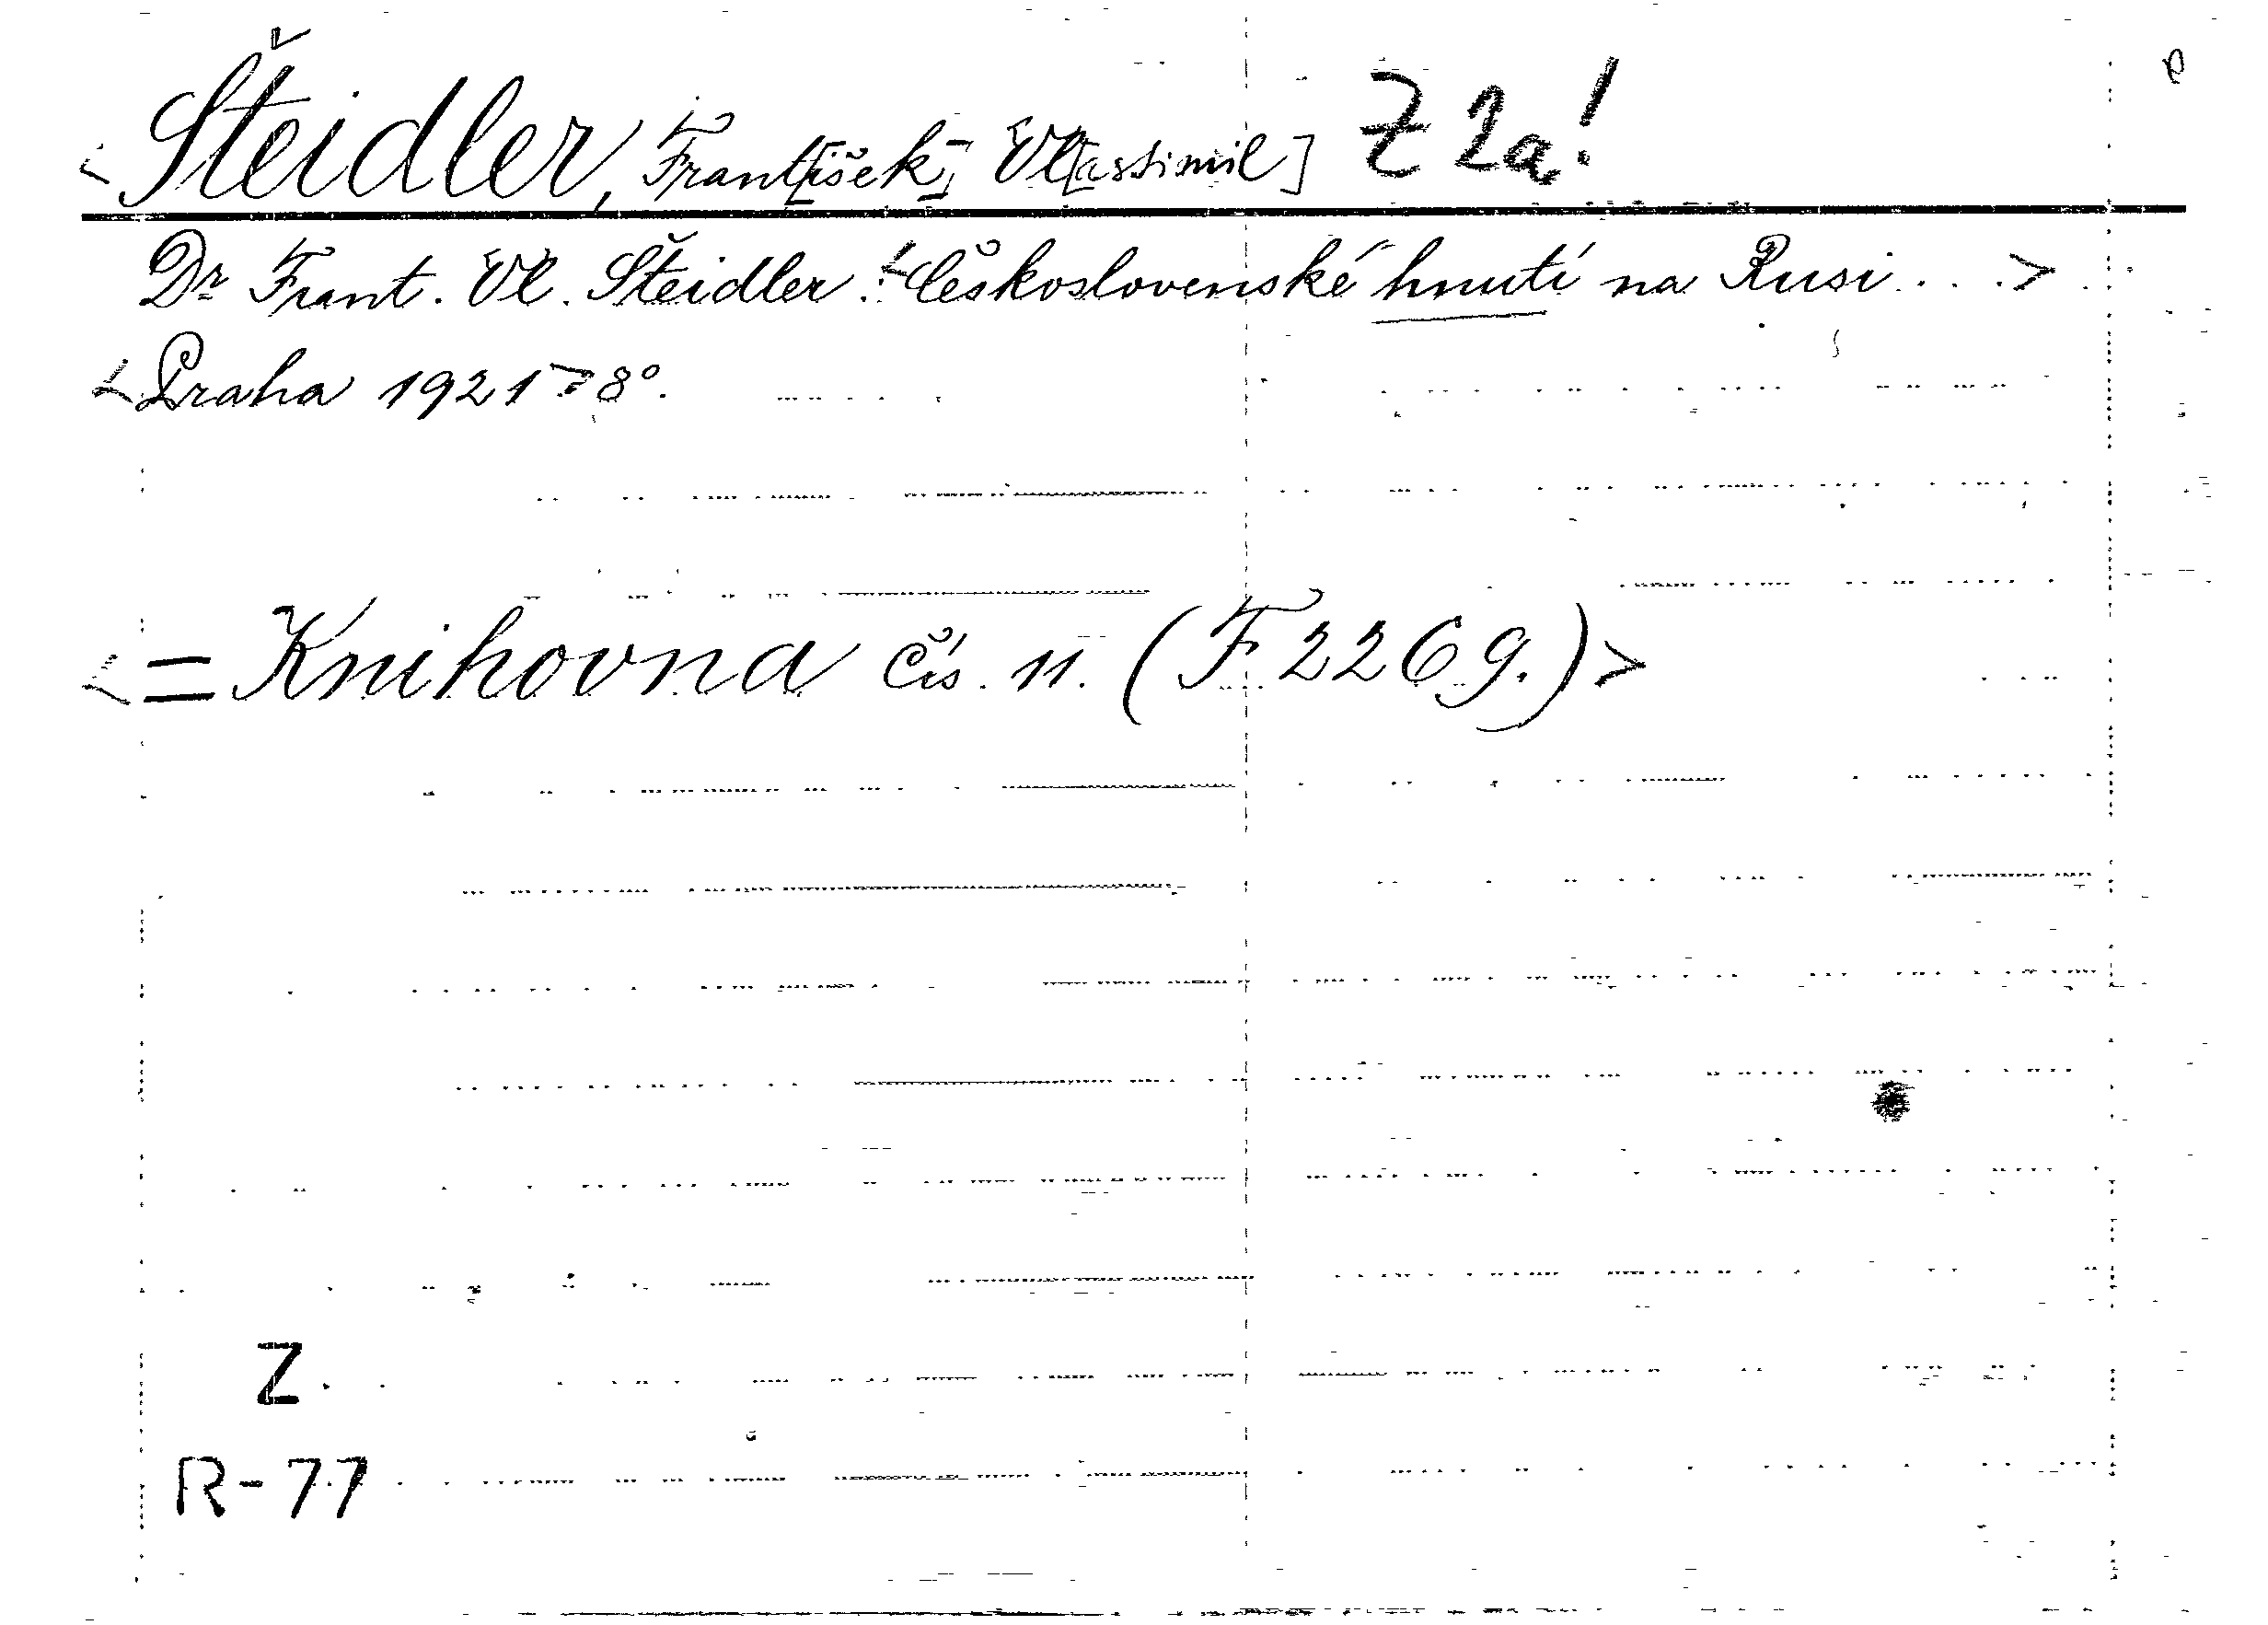 <Šteidler, Frant[išek] Vl[astimil] Z 2a!
Dr Frant. Vl. Šteidler: <Československé hnutí na Rusi...>
<Praha 1921> 8°.
<= Knihovna čís. 11. (F 2269.)>
Z.
R-77